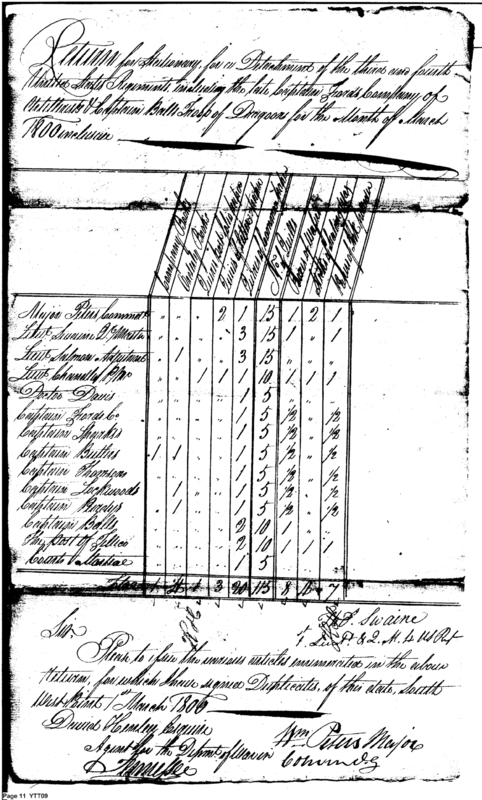 Return for Stationary, for a Detachment of the third and fourth
United States Regiments including the late Captain Fords Company of
Artillerists & Captain Balls Troop of Dragoons for the Month of March
1800 inclusive
Company Books
Orderly Books
Quires of
Quires of Letter paper
Quires of
No. of Quills
of Wafers
of Ink
of Ink powder
Major Peters Commdt. " " " 2 1 15 1 2 1
Lieut. Swaine Qr. Master " " " " 3 15 1 " 1
Lieut. Salmon Adjutant " 1 " " 3 15 " " "
Lieut. Chandler P. Mr. " " 1 1 1 10 1 1 1
Doctor Davis " " " " 1 5
Captain Fords Co. " " " " 1 5 1/2 " 1/2
Captain Sparks " " " " 1 5 1/2 " 1/2
Captain Butlers 1 1 " " 1 5 1/2 " 1/2
Captain Thomsons " " " 1 5 1/2 " 1/2
Captain Lockwoods " 1 " " 1 5 1/2 " 1/2
Captain " 1 " " 1 5 1/2 " 1/2
Captain Balls " " " " 2 10 1 "
The Post of Tellico " " " " 2 10 1 1 1
Courts Martial " " " " 1 5
3 20 115 8 7
T. Swaine
Lieut & Q. M. 4 US Rgt
Sir
Please to issue the various articles enumerated in the above
Return, for which I have signed Duplicates, of this date, South
West Point 1st March 1800
David Henley Esquire
Agent for the Depmt of War in
Tennessee
Wm Peters Major
Commdg
Page 11 YTT09